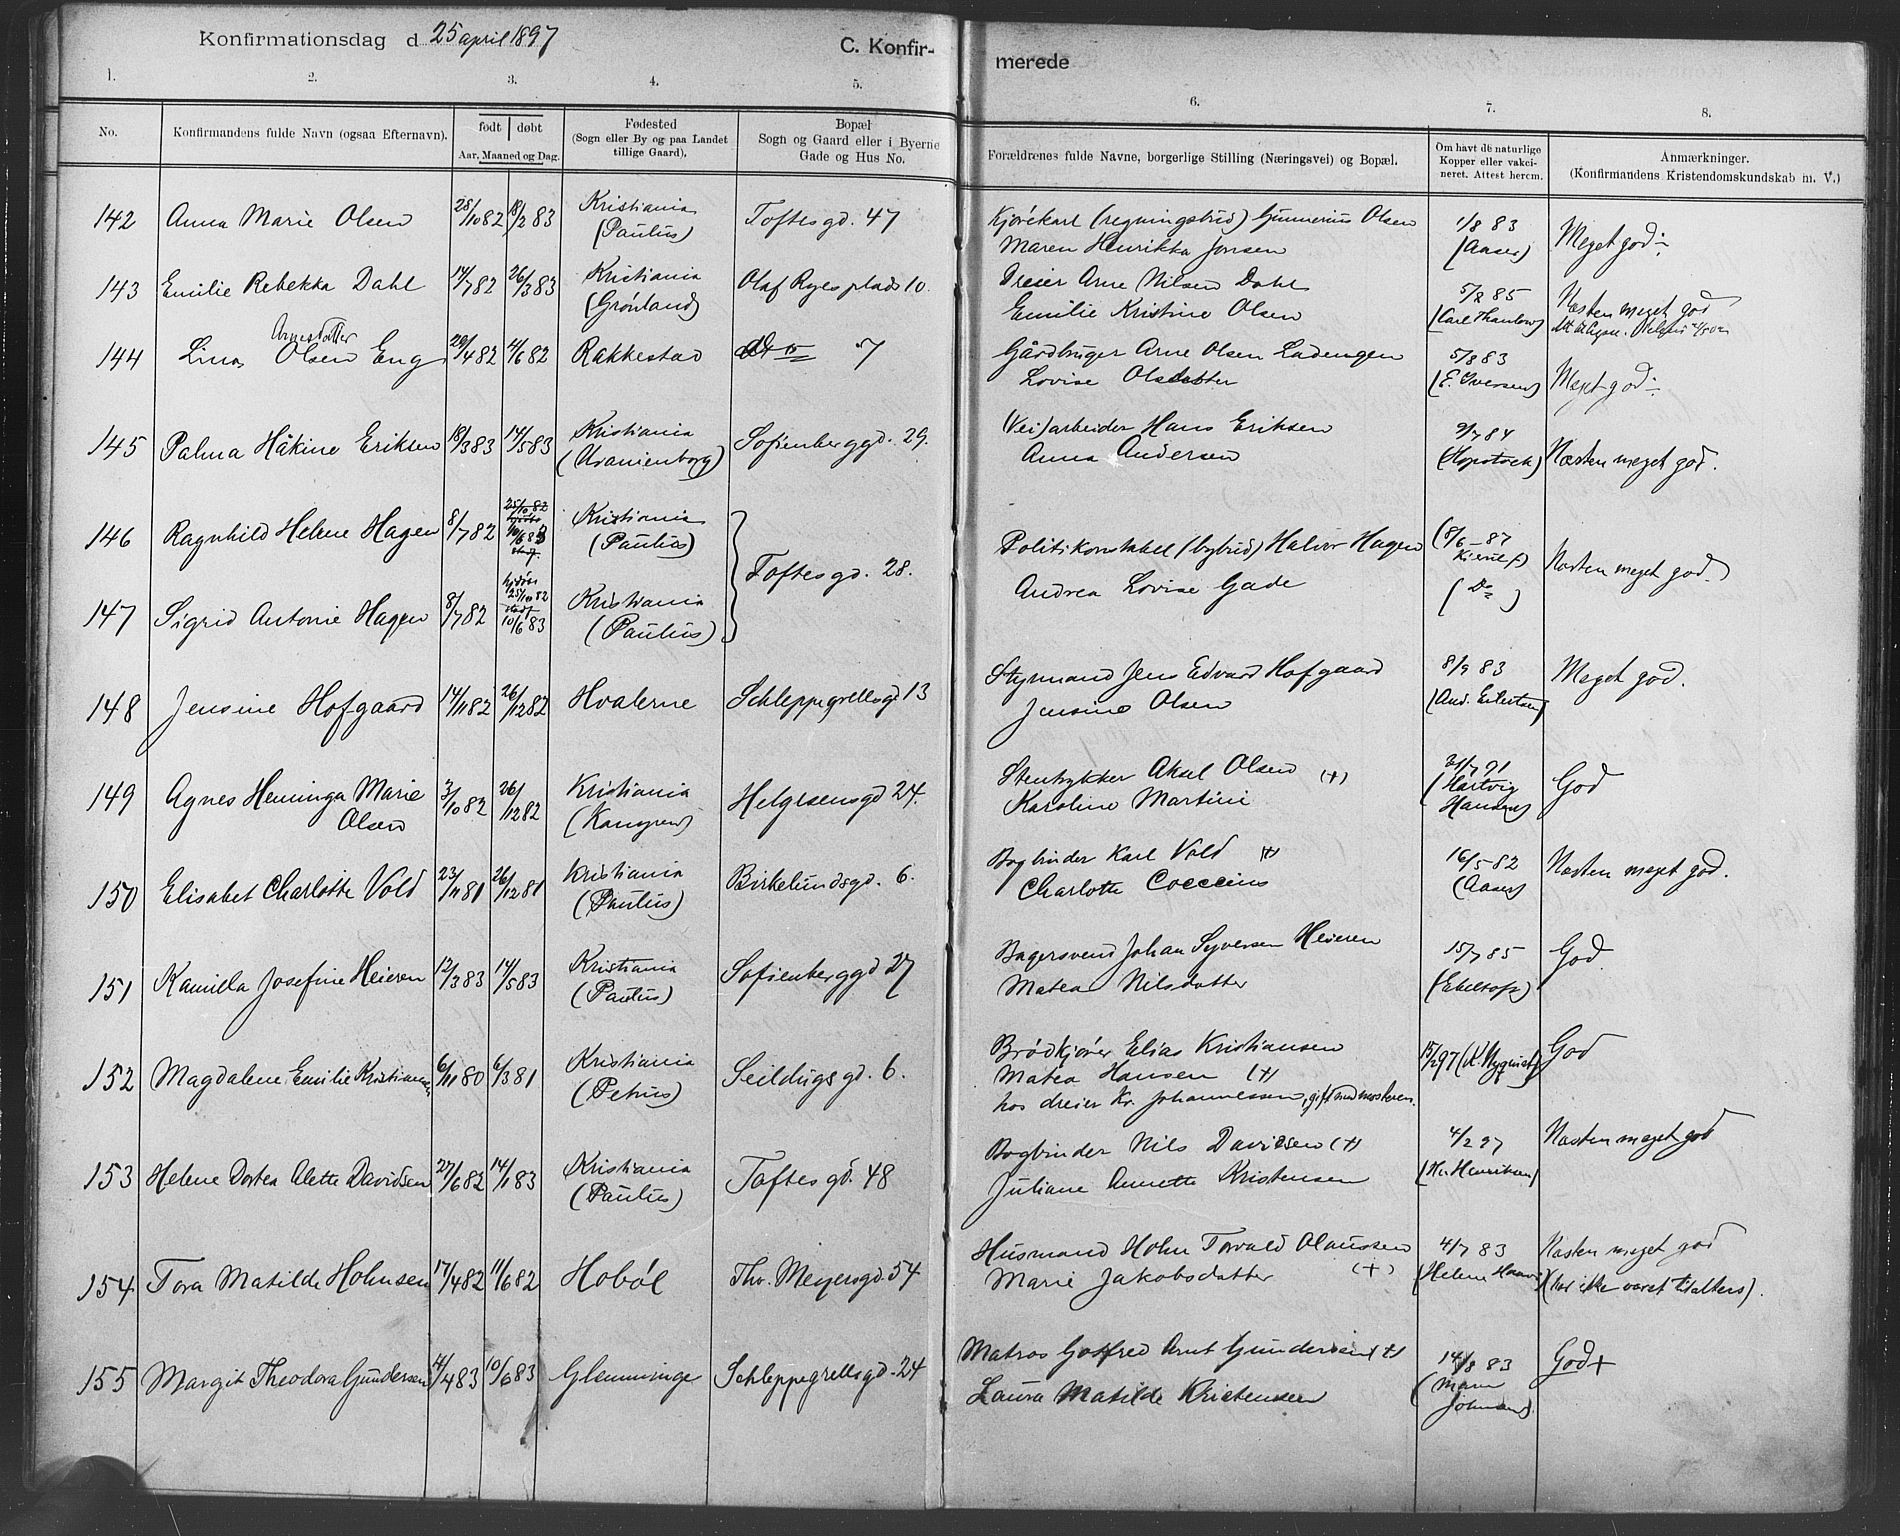 Konfirmationsdag d 25 april 1897
C. Konfir-
merede
1. 2. 3. 4. 5. 6. 7. 8.
No.
Konfirmandens fulde Navn (ogsaa Efternavn).
født døbt
Aar, Maaned og Dag.
Fødested
(Sogn eller By og paa Landet
tillige Gaard).
Bopæl
Sogn og Gaard eller i Byerne
Gade og Hus No.
Forældrenes fulde Navne, borgerlige Stilling (Næringsvei) og Bopæl.
Om havt de naturlige
Kopper eller vakci-
neret. Attest herom.
Anmærkninger.
(Konfirmandens Kristendomskundskab m. V.)
142 Anna Marie Olsen 28/10 82 18/2 83 Kristiania (Paulus) Toftesgd. 47
Kjørekarl (regningsbud) Gunnerius Olsen 1/8 83 Meget god
Maren Henrikka Jonsen (Aaser)
143 Emilie Rebekka Dahl 14/7 82 26/3 83 Kristiania (Grønland) Olaf Ryes plads 10.
Dreier Arne Nilsen Dahl 5/8 85 Næsten meget god
Emilie Kristine Olsen (Carl Thaulow)
Arnesdatter
144 Lina Olsen Eng 29/4 82 4/6 82 Rakkestad 7
Gårdbruger Arne Olsen Ladengen 5/8 83 Meget god
Lovise Olsdatter (E. Iversen)
145 Palma Håkine Eriksen 18/3 83 14/5 83 Kristiania (Uranienborg) Sofienberggd. 29.
(Vei)arbeider Hans Eriksen 9/7 84 Næsten meget god.
Anna Andersen (Kopstock)
146 Ragnhild Helene Hagen 8/7 82 25/10 82 10/6 83 Kristiania (Paulus)
Toftesgd. 28.
Politikonstabel (bybud) Halvor Hagen (8/6 87 Kierulf) Næsten meget god.
147 Sigrid Antonie Hagen 8/7 82 hjdøbt 25/10 82 stadf. 10/6 83 Kristiania (Paulus)
Andrea Lovise Gade (Do)
148 Jensine Hofgaard 14/11 82 26/12 82 Hvalerne Schleppegrellsgd 13
Styrmand Jens Edvard Hofgaard 8/9 83 Meget god.
Jensine Olsen (And. Eilertsen)
149 Agnes Heninga Marie 3/10 82 26/12 82 Kristiania (Kampen) Helgesensgd 24.
Olsen
Stentrykker Aksel Olsen (+) 21/7 91 God
Karoline Martini (Hartvig Hansen)
150 Elisabet Charlotte Vold 23/11 81 26/12 81 Kristiania (Paulus) Birkelundsgd. 6.
Bogbinder Karl Vold (+) 16/5 82 Næsten meget god.
Charlotte Coccius (Aaser)
151 Kamilla Josefine Heieren 12/3 83 14/5 83 Kristiania (Paulus) Sofienberggd 27
Bagersvend Johan Syversen Heieren 15/7 85 God.
Matea Nilsdatter (Ebeltoft)
152 Magdalene Emilie Kristiansen 6/11 80 6/3 81 Kristiania (Petrus) Seildugsgd. 6.
Brødkjører Elias Kristiansen 15/2 97 (K. Nyquist) God
Matea Hansen (+)
hos dreier Kr. Johannessen, gift med mosteren.
153 Helene Dortea Alette Davidsen 27/6 82 14/1 83 Kristiania (Paulus) Toftesgd. 48
Bogbinder Nils Davidsen (+) 4/2 97 Næsten meget god
Juliane Annette Kristensen (Hr. Henriksen)
154 Tora Matilde Holmsen 17/4 82 11/6 82 Hobøl Thv. Meyersgd. 54
Husmand Holm Torvald Olaussen 4/7 83 Næsten meget god
Marie Jakobsdatter (+) (har ikke været til alters).
155 Margit Theodora Gundersen 14/4 83 10/6 83 Glemminge Schleppegrellsgd. 24
Matros Gotfred Arnt Gundersen (+) 14/8 83 God +
Laura Matilde Kristensen (Marn Johnsen).